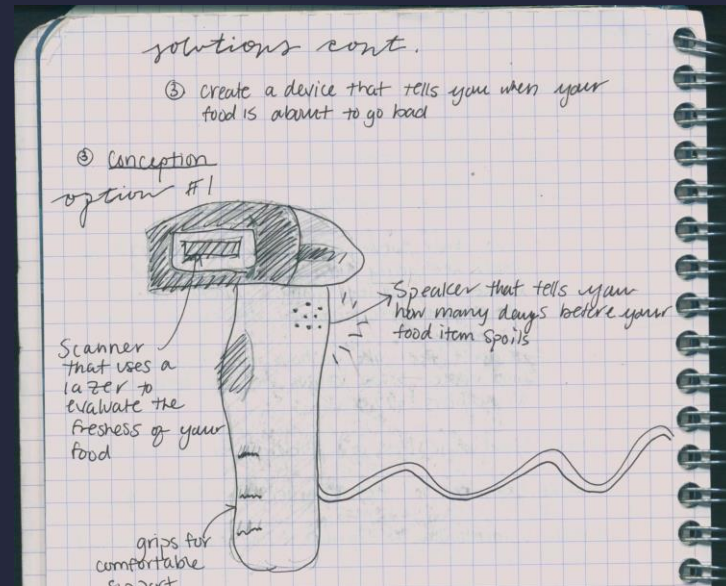 solutions cont.
③ Create a device that tells you when your
food is about to go bad
③ Conception
option #1
Speaker that tells you
how many days before your
food item spoils
Scanner
that uses a
lazer to
evaluate the
freshess of your
food
grips for
comfortable
support